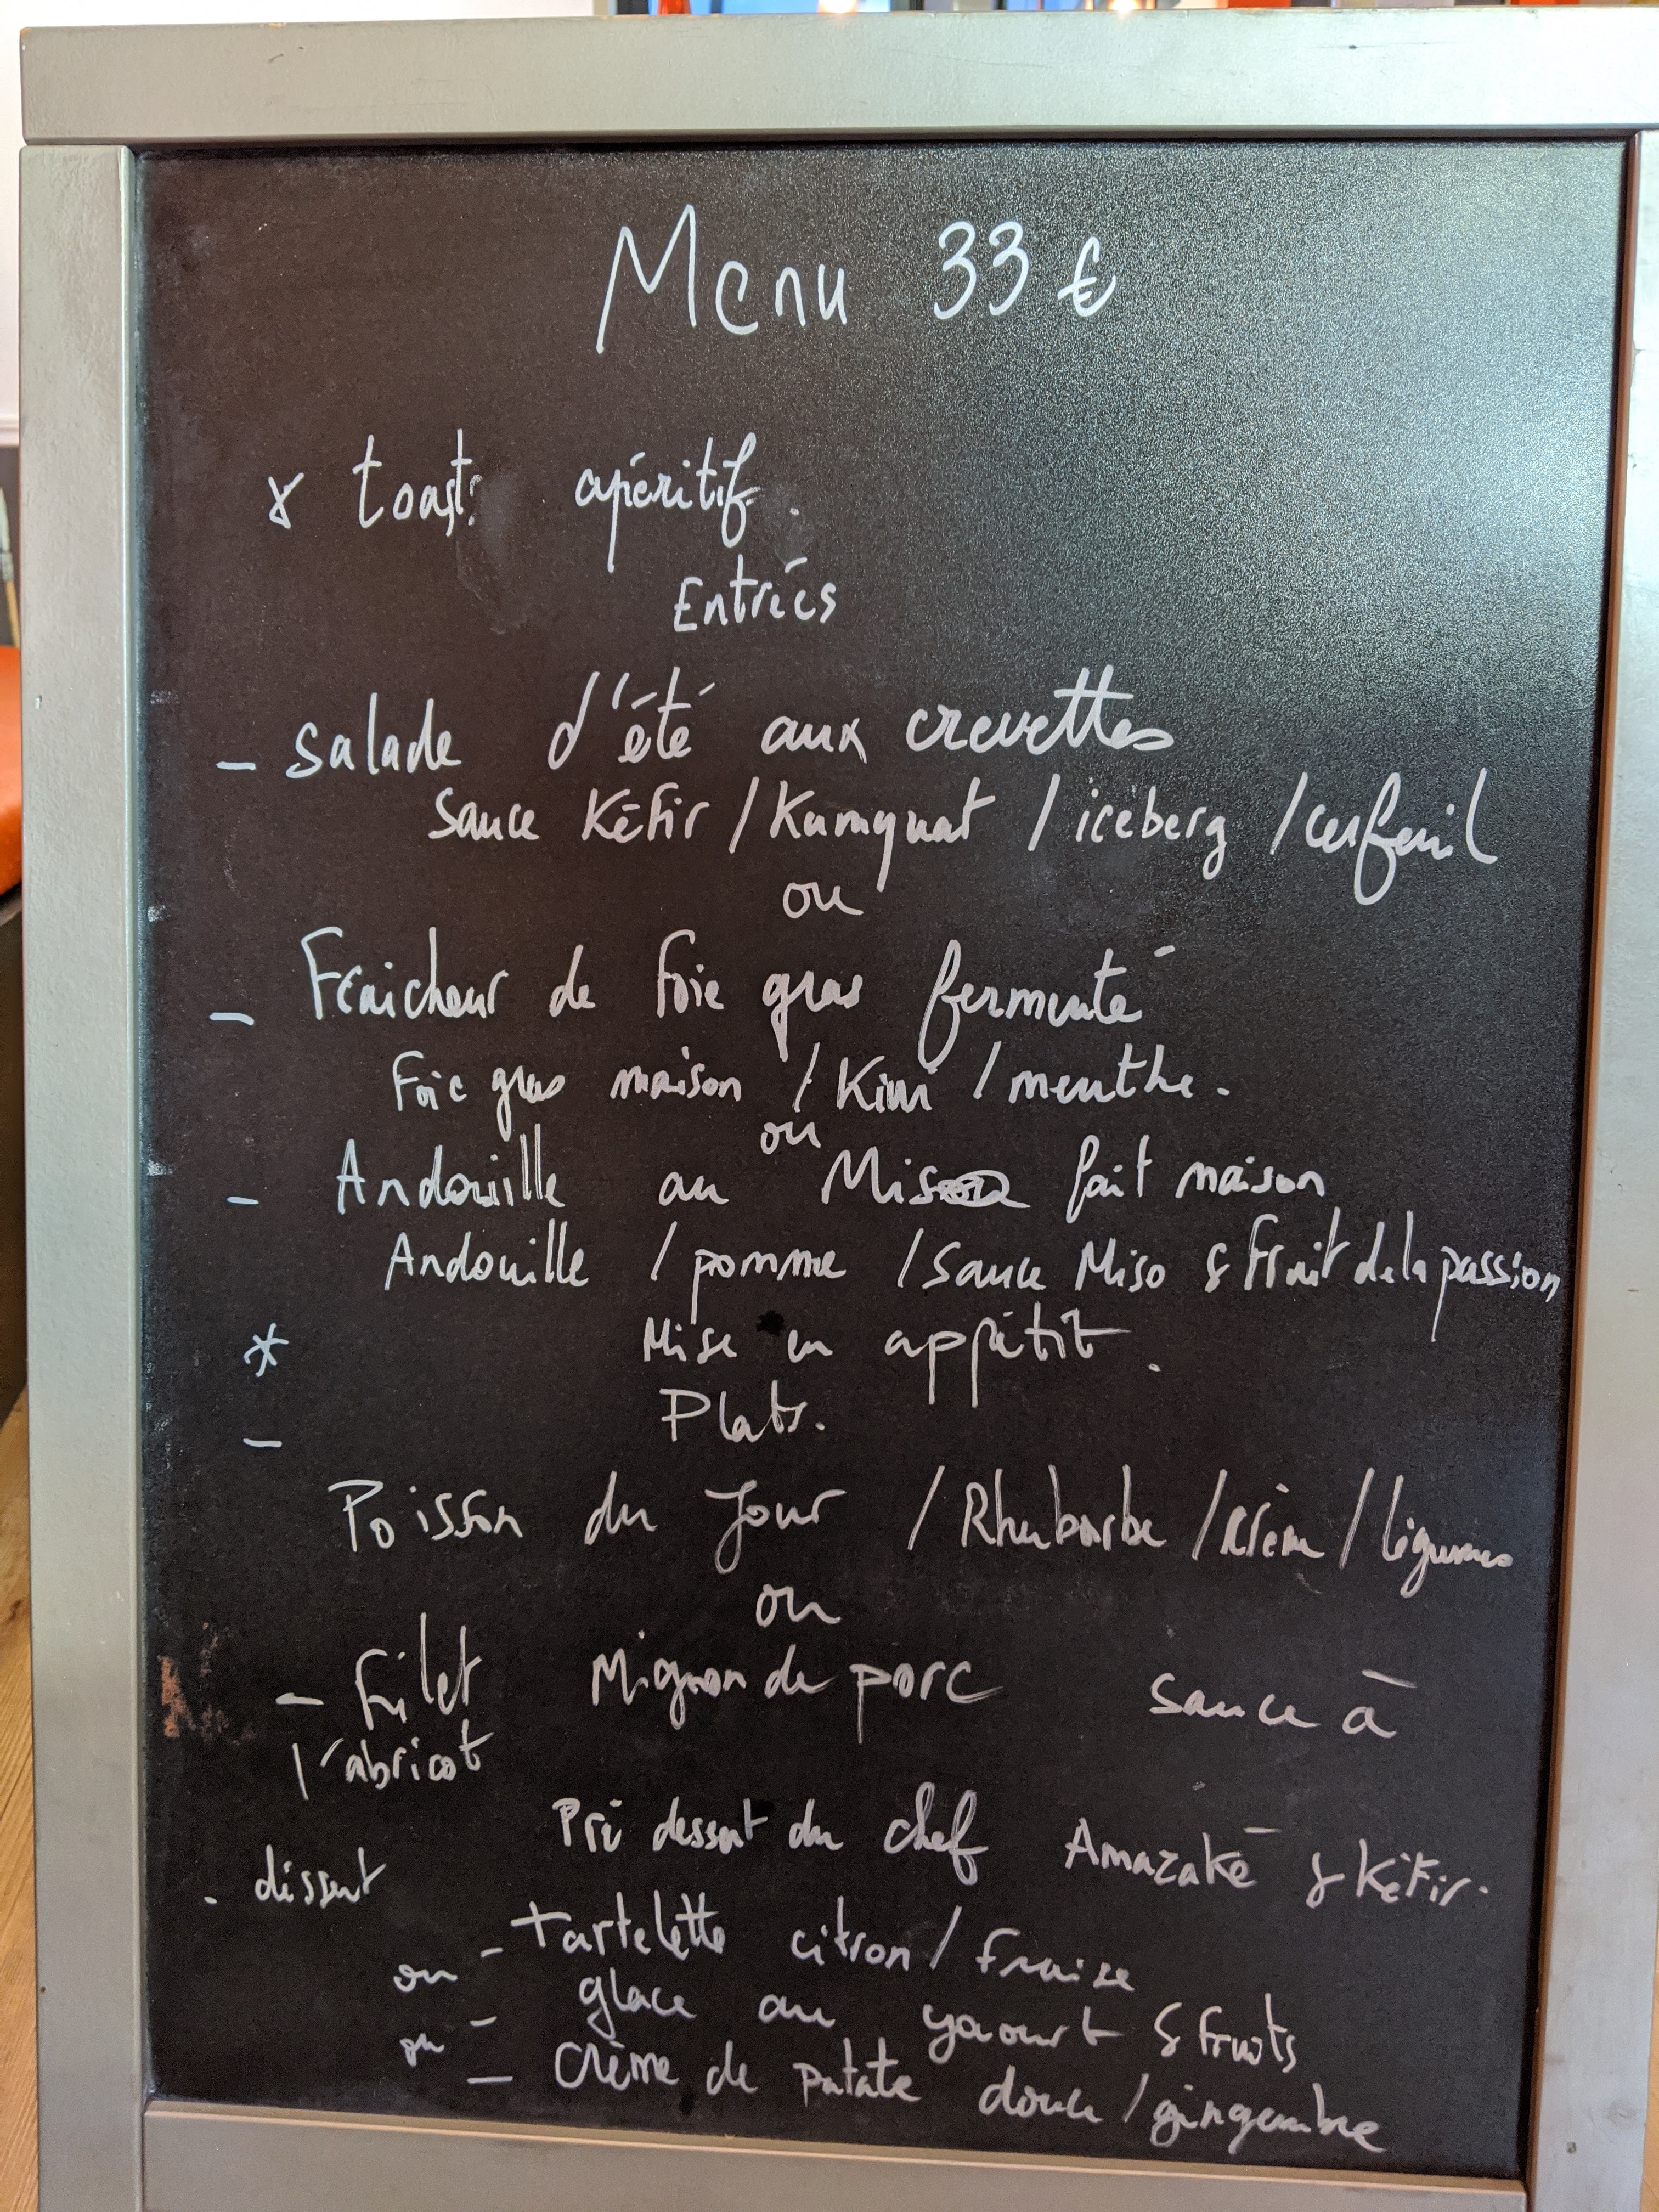 Menu 33 €
* toast: apéritif.
Entrées
- Salade d'été aux crevettes
Sauce Kéfir / Kumquat / iceberg / cerfeuil
ou
- Fraicheur de foie gras fermenté
Foie gras maison / Kiwi / menthe.
ou
- Andouille au Miso fait maison
Andouille / pomme / Sauce Miso & Fruit de la passion
* Mise en appétit.
- Plats.
Poisson du Jour / Rhubarbe / crème / légumes
ou
- Filet Mignon de porc sauce à
l'abricot
Pré dessert du chef Amazaké & Kéfir.
. dessert
- tartelette citron / Fraise
ou - glace au yaourt & fruits
ou - Crème de patate douce / gingembre